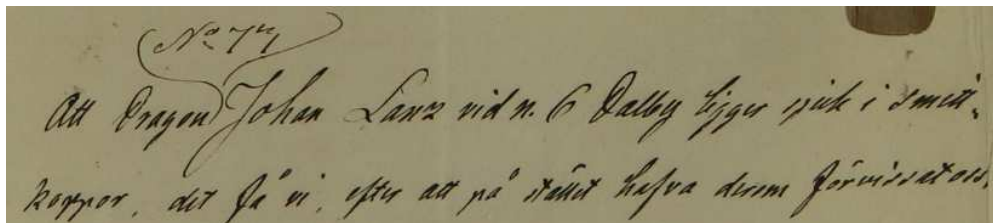 No 77
Att Dragon Johan Lanz vid n. 6 Dalby ligger sjuk i smitt-
koppor, det få vi, efter att på stället hafva derom förvissat oss,